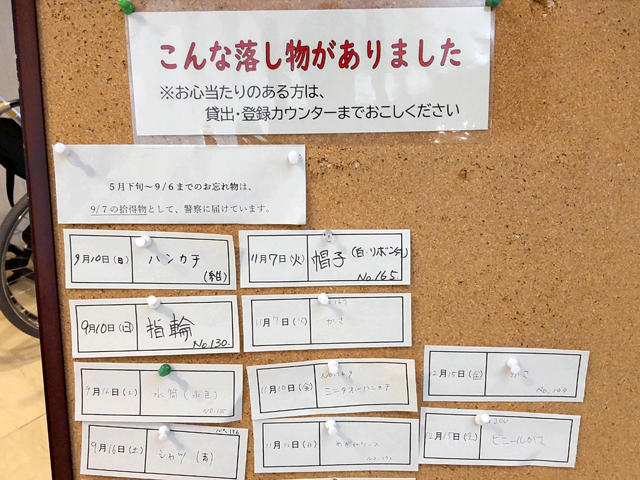 こんな落し物がありました
※お心当たりのある方は、
貸出・登録カウンターまでおこしください
5月下旬～9/6までのお忘れ物は、
9/7の拾得物として、警察に届けています。
9月10日(日) ハンカチ
(紺)
11月7日(火) 帽子(白・リボン付)
No.165.
9月10日(日) 指輪
No.130.
11月7日(火) かさ
9月16日(土) 水筒(水色)
11月10日(金) ミニタオルハンカチ
12月15日(金)
No.199
9月16日(土) シャツ(青)
12月15日(金) ビニールかさ